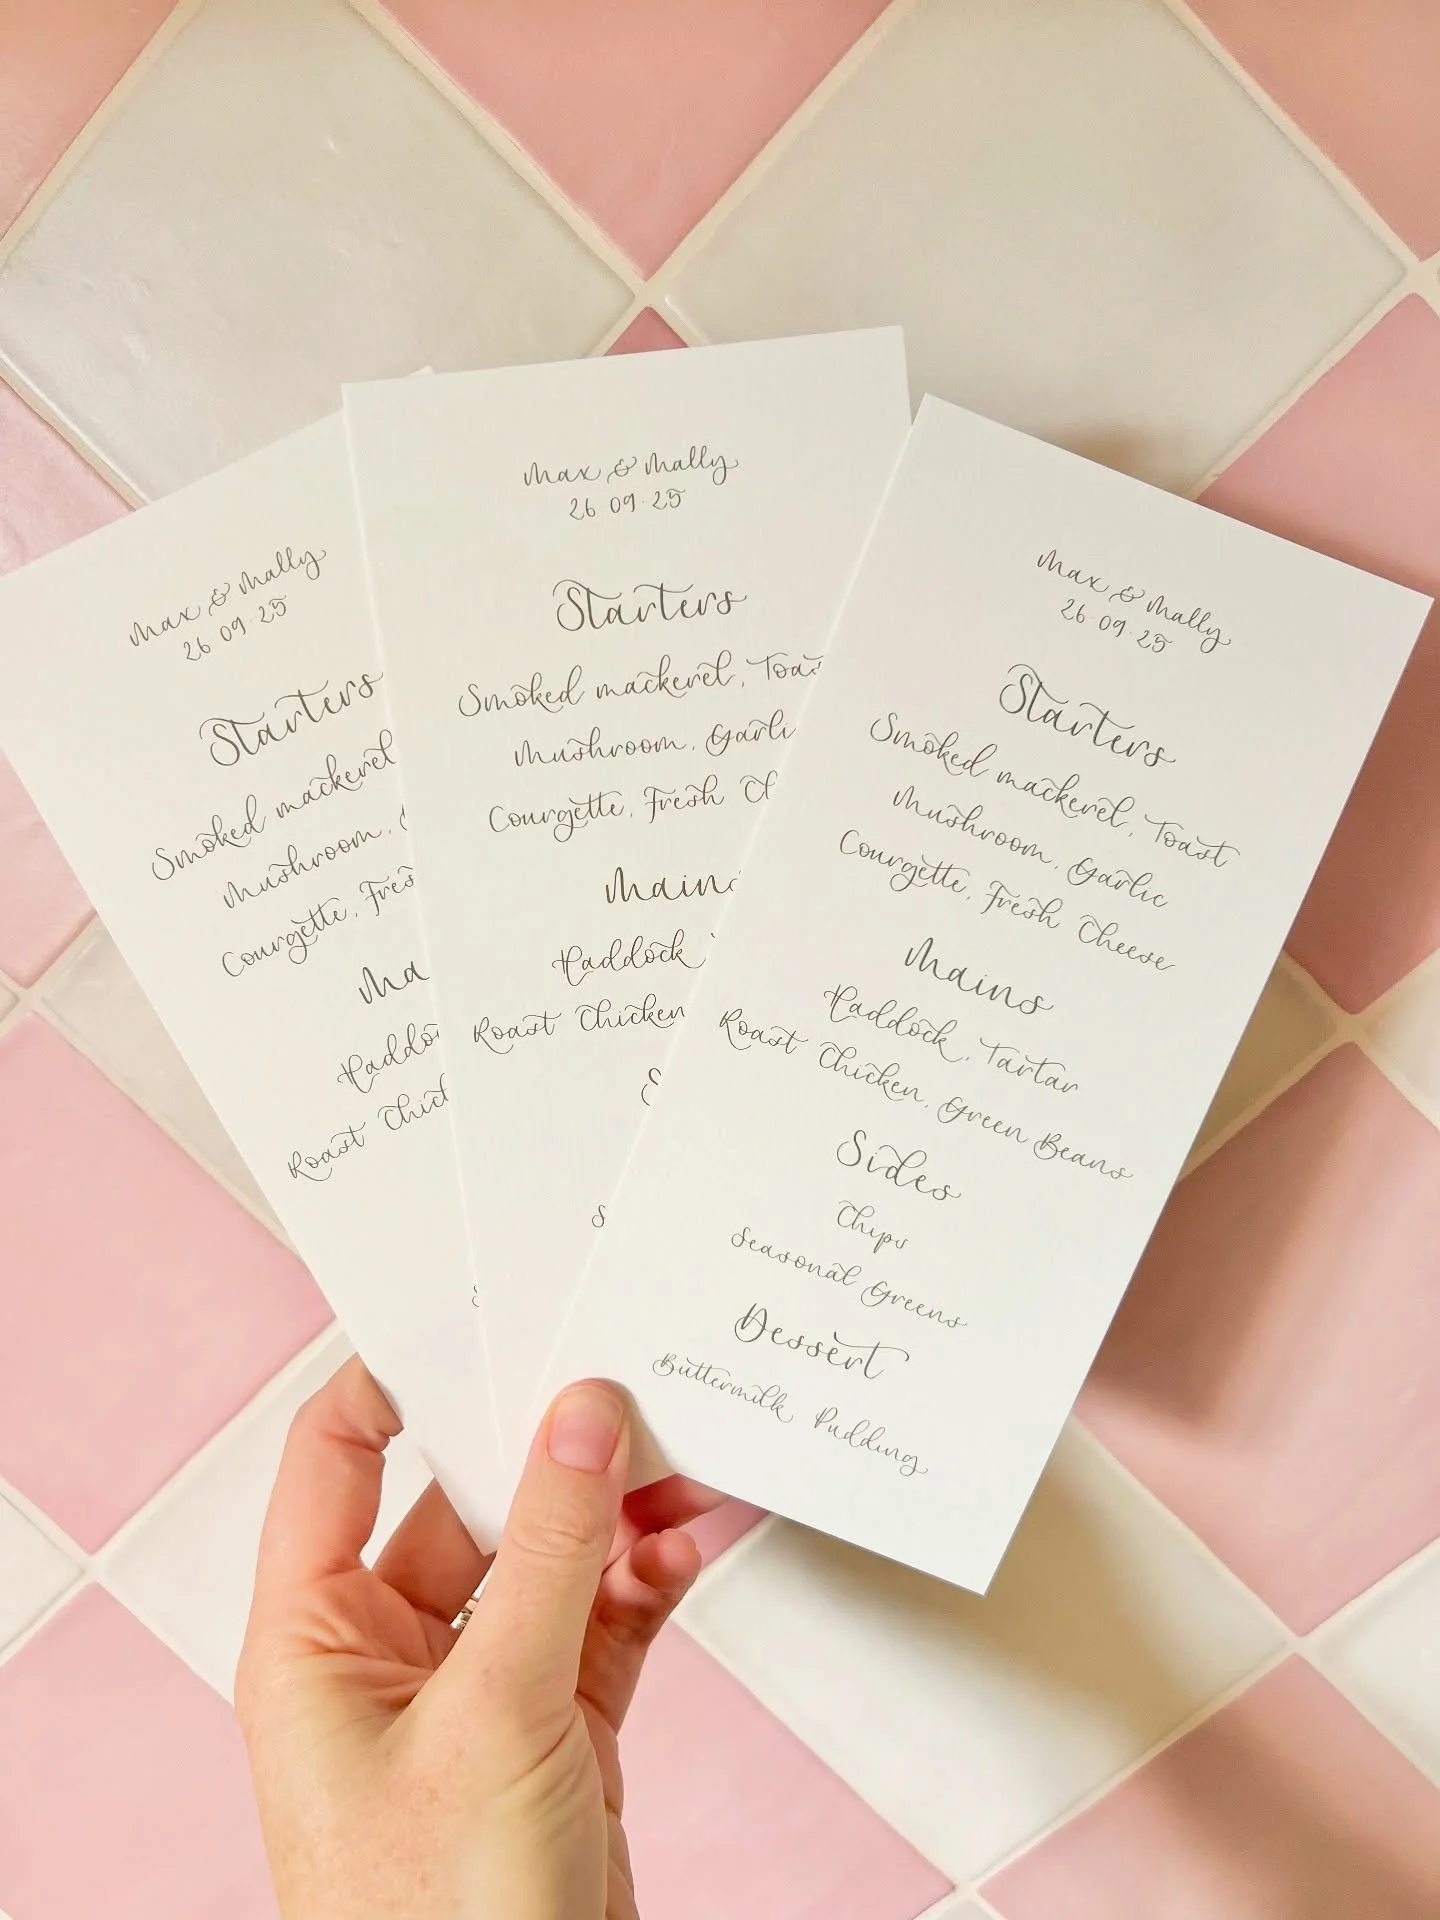 Max & Mally
26 09 · 25
Starters
Smoked mackerel
Mushroom,
Courgette, Fres
Ma
Haddo
Roast Chick
S
Max & Mally
26 09 · 25
Starters
Smoked mackerel, Toas
Mushroom, Garli
Courgette, Fresh Ch
Mains
Haddock
Roast Chicken
S
S
Max & Mally
26 09 · 25
Starters
Smoked mackerel, Toast
Mushroom, Garlic
Courgette, Fresh Cheese
Mains
Haddock, Tartar
Roast Chicken, Green Beans
Sides
Chips
Seasonal Greens
Dessert
Buttermilk Pudding